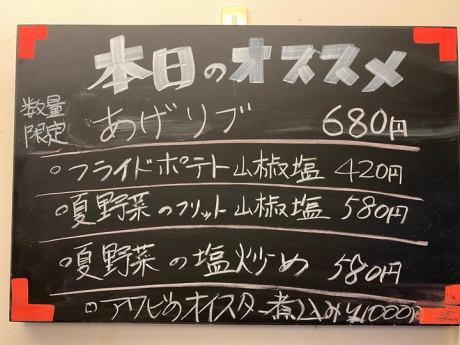 本日のオススメ
数量限定 あげリブ 680円
○フライドポテト山椒塩 420円
○夏野菜のフリット山椒塩 580円
○夏野菜の塩炒め 580円
○アワビのオイスター煮込み ¥1000円